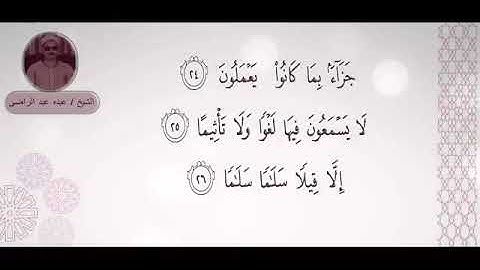 جَزَآءًۢ بِمَا كَانُوا۟ يَعْمَلُونَ ٢٤
لَا يَسْمَعُونَ فِيهَا لَغْوًا وَلَا تَأْثِيمًا ٢٥
إِلَّا قِيلًا سَلَٰمًا سَلَٰمًا ٢٦
الشيخ / عبده عبد الراضى